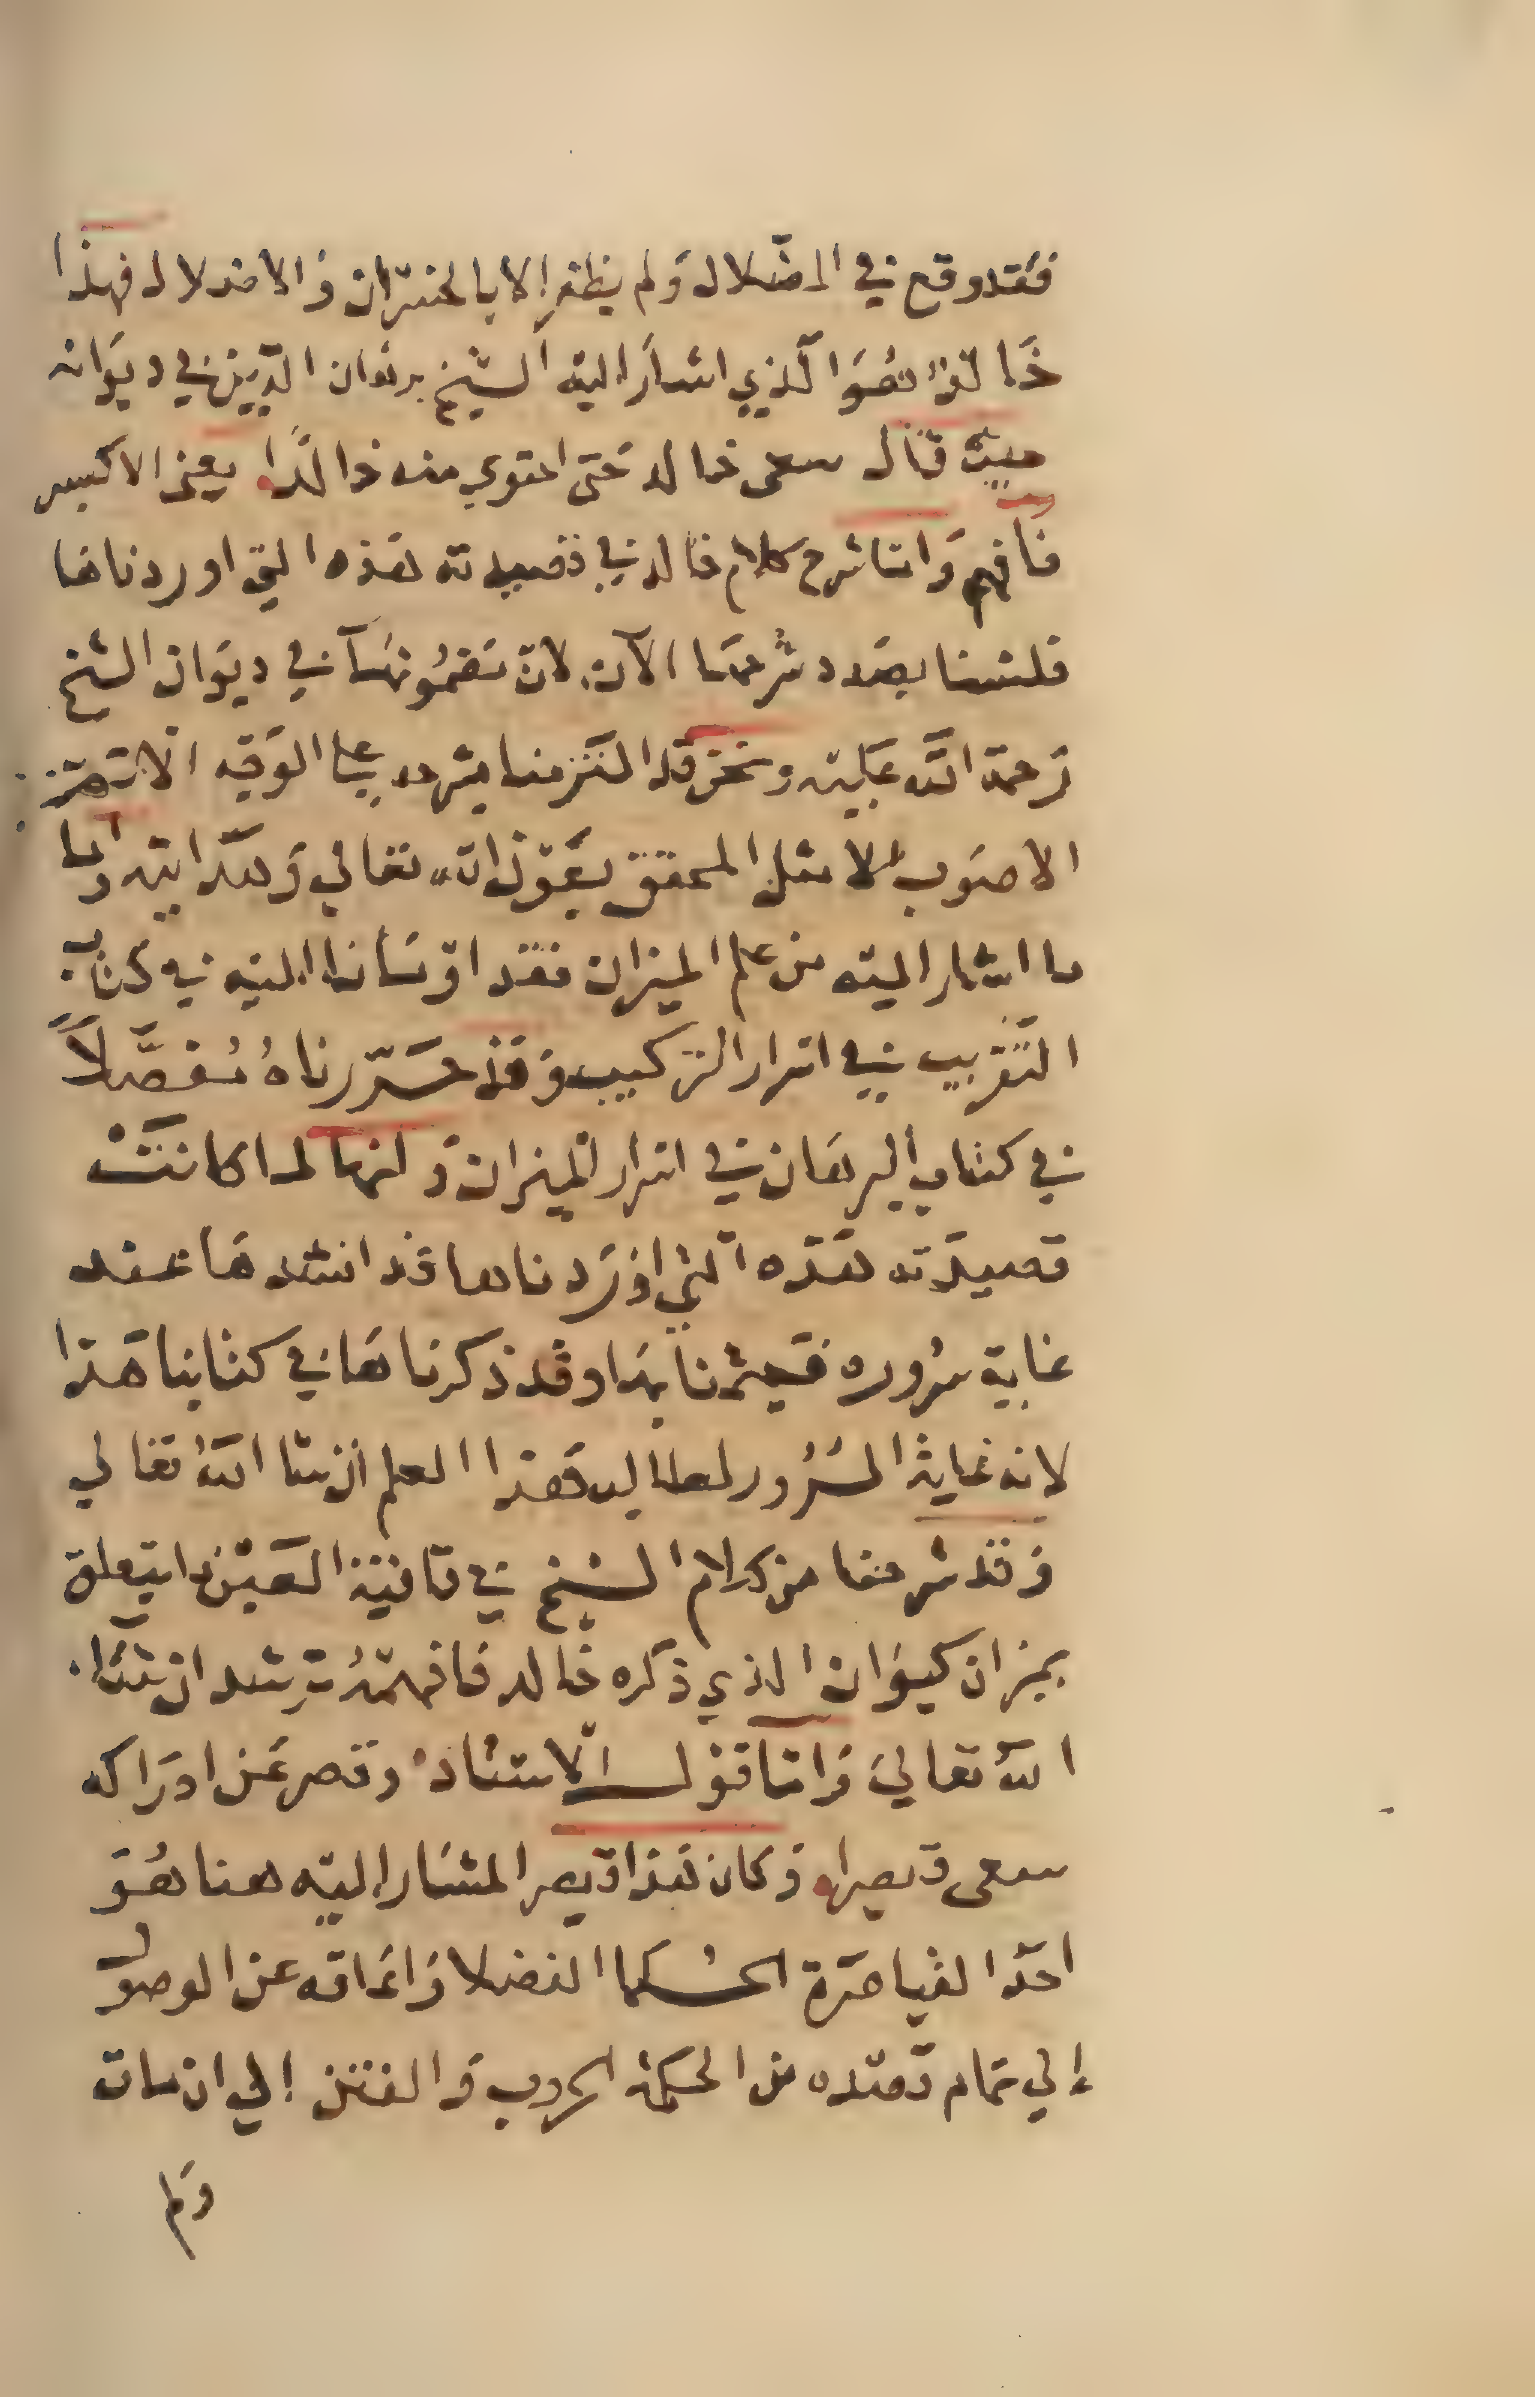 فقد وقع في الضلال ولم يظفر الا بالخسران والاضلال فهذا
خالد هو الذي اشار اليه الشيخ برهان الدين في ديوانه
حيث قال سعى خالد حتى احتوي منه خالدا يعني الاكسير
فافهم واما شرح كلام خالد في قصيدته هذه التي اوردناها
فلسنا بصدد شرحها الآن لان مضمونها في ديوان الشيخ
رحمة الله عليه ونحن قد التزمنا بشرحه علي الوجه الاتم
الاصوب الامثل المحقق بعون الله تعالي وهدايته واما
ما اشار اليه من علم الميزان فقد اومأنا اليه في كتاب
التقريب في اسرار التركيب وقد حررناه مفصلاً
في كتاب البرهان في اسرار الميزان ولنها لما كانت
قصيدته هذه التي اوردناها قد انشدها عند
غاية سروره فحيث نابها وقد ذكرناها في كتابنا هذا
لانه غاية السرور لطالب هذا العلم ان شا الله تعالي
وقد شرحنا من كلام الشيخ في قافية العين ما يتعلق
بميزان كيوان الذي ذكره خالد فافهمه ترشد ان شا
الله تعالي واما قول الاستاد وقصر عن ادراكه
سعى قيصر وكان هذا قيصر المشار اليه هنا هو
احد القياصرة الحكما الفضلا واعاقه عن الوصول
إلي تمام قصده من الحكمة الحروب والفتن إلي ان مات
ولم